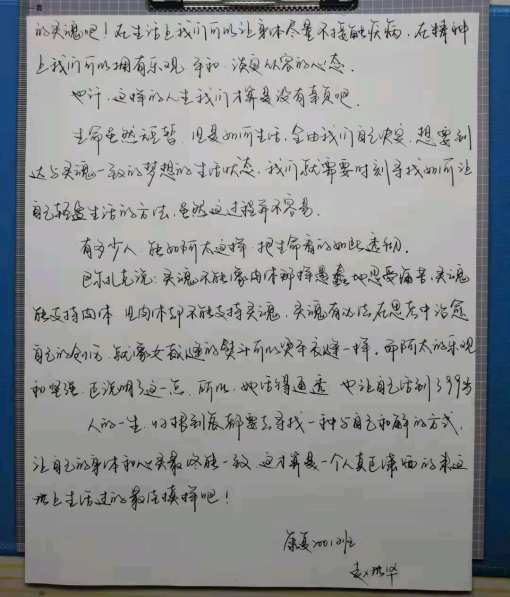 的灵魂吧！在生活上我们可以让身体尽量不接触疾病，在精神
上我们可以拥有乐观、平和、淡定从容的心态。
也许，这样的人生我们才算是没有辜负吧。
生命虽然短暂，但是如何生活，全由我们自己决定，想要到
达与灵魂一致的梦想的生活状态，我们就需要时刻寻找如何让
自己轻盈生活的方法，虽然这过程并不容易。
有多少人，能如阿太这样，把生命看的如此透彻。
巴尔扎克说：灵魂不能像肉体那样愚蠢地忍受痛苦，灵魂
能支持肉体，但肉体却不能支持灵魂，灵魂有办法在思考中治愈
自己的创伤，就像女裁缝的熨斗可以烫平衣缝一样。而阿太的乐观
和坚强，正说明了这一点，所以，她活得通透，也让自己活到了99岁
人的一生，归根到底都要去寻找一种与自己和解的方式，
让自己的身体和心灵最终能一致，这才算是一个人真正潇洒的来这
世上生活过的最佳模样吧！
康复2001班